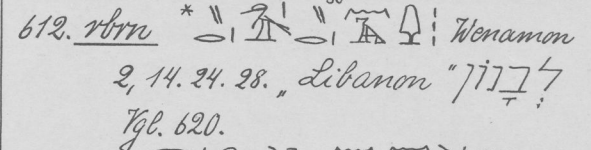 612. rbrn * Wenamon
2, 14. 24. 28. „Libanon“ לְבָנוֹן
Vgl. 620.